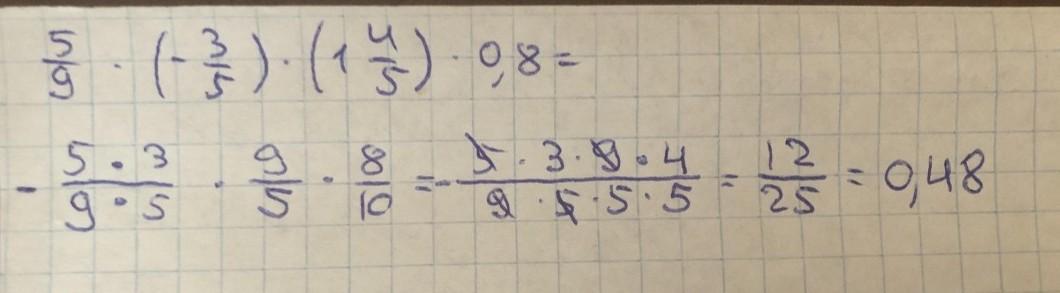 5/9 · (-3/5) · (1 4/5) · 0,8 =
- 5·3/9·5 · 9/5 · 8/10 = - 5·3·9·4/9·5·5·5 = 12/25 = 0,48